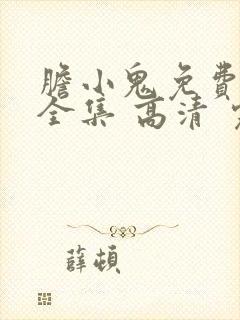 膽小鬼免費
全集 高清
薛頓